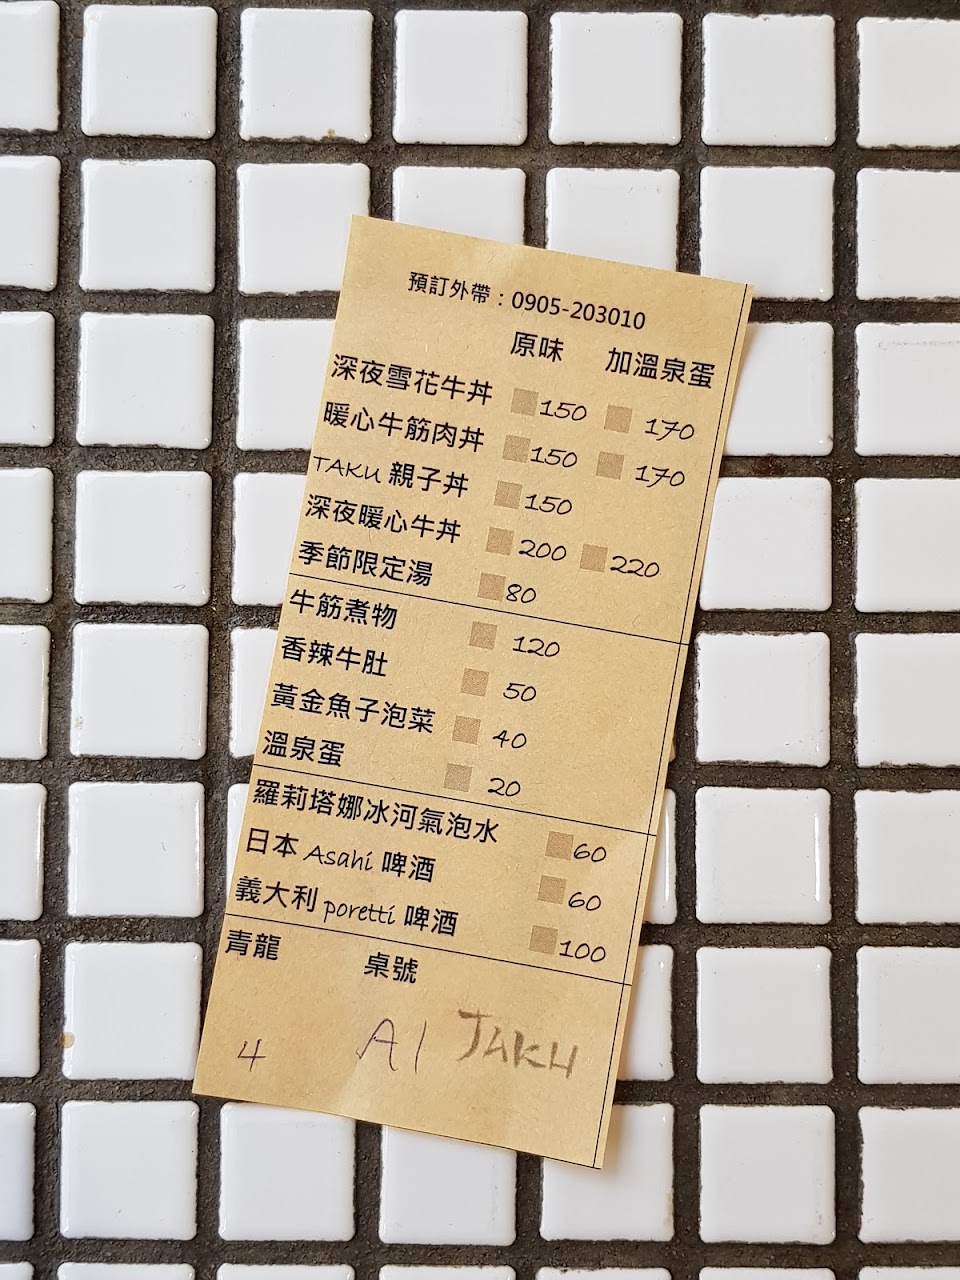 預訂外帶：0905-203010
原味 加溫泉蛋
深夜雪花牛丼 150 170
暖心牛筋肉丼 150 170
TAKU 親子丼 150
深夜暖心牛丼 200 220
季節限定湯 80
牛筋煮物 120
香辣牛肚 50
黃金魚子泡菜 40
溫泉蛋 20
羅莉塔娜冰河氣泡水 60
日本 Asahi 啤酒 60
義大利 poretti 啤酒 100
青龍 桌號
4 A1 TAKU